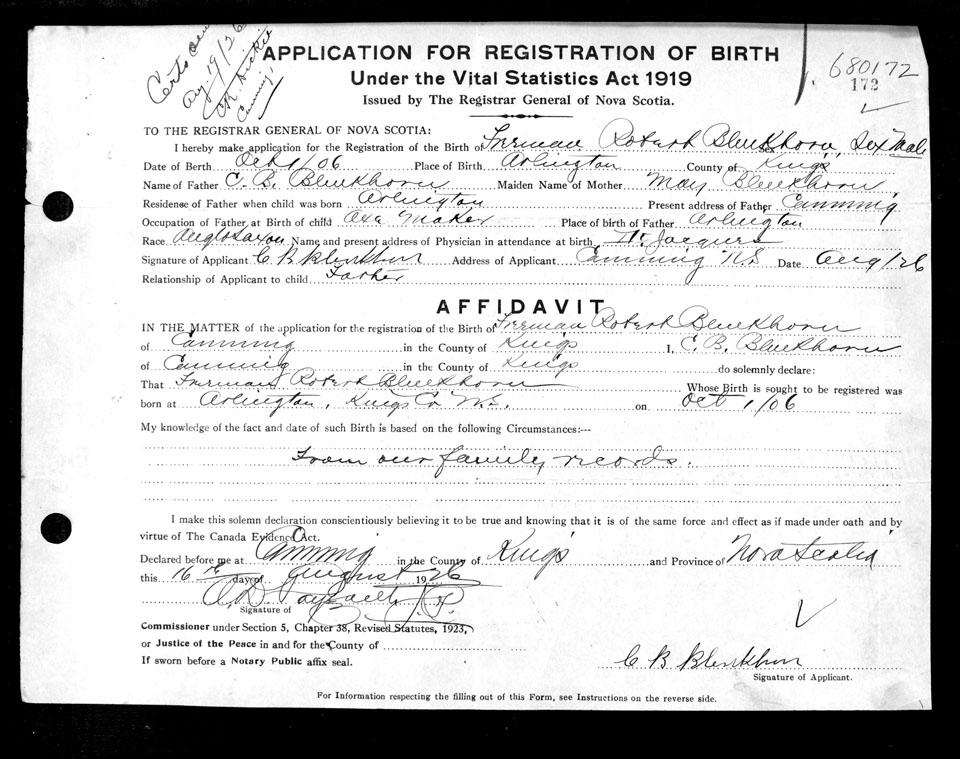 Aug 19/26
Canning
APPLICATION FOR REGISTRATION OF BIRTH
Under the Vital Statistics Act 1919
Issued by The Registrar General of Nova Scotia.
680172
172
TO THE REGISTRAR GENERAL OF NOVA SCOTIA:
I hereby make application for the Registration of the Birth of Freeman Robert Blenkhorn, Sex Male
Date of Berth Oct 1/06 Place of Birth Arlington County of Kings
Name of Father C. B. Blenkhorn Maiden Name of Mother May Blenkhorn
Residense of Father when child was born Arlington Present address of Father Canning
Occupation of Father at Birth of child Axe Maker Place of birth of Father Arlington
Race Anglo Saxon Name and present address of Physician in attendance at birth Dr Jacques
Signature of Applicant C B Blenkhorn Address of Applicant Canning N.S. Date Aug /26
Relationship of Applicant to child Father
AFFIDAVIT
IN THE MATTER of the application for the registration of the Birth of Freeman Robert Blenkhorn
of Canning in the County of Kings I, C. B. Blenkhorn
of Canning in the County of Kings do solemnly declare:
That Freeman Robert Blenkhorn Whose Birth is sought to be registered was
born at Arlington, Kings Co N.S. on Oct 1/06
My knowledge of the fact and date of such Birth is based on the following Circumstances:--
From our family records.
I make this solemn declaration conscientiously believing it to be true and knowing that it is of the same force and effect as if made under oath and by
virtue of The Canada Evidence Act.
Declared before me at Canning in the County of Kings and Province of Nova Scotia
this 16th day of August 1926
J.P.
Signature of
Commissioner under Section 5, Chapter 38, Revised Statutes, 1923,
or Justice of the Peace in and for the County of
If sworn before a Notary Public affix seal.
C B Blenkhorn
Signature of Applicant.
For Information respecting the filling out of this Form, see Instructions on the reverse side.